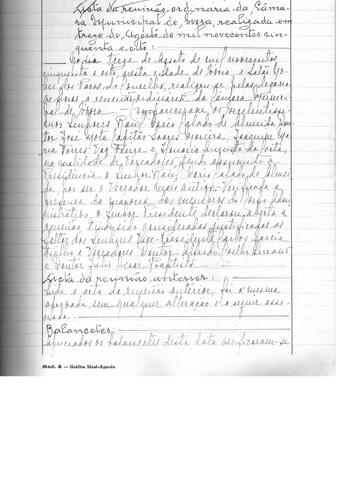 Acta da reunião ordinaria da Câma-
ra Municipal de Evora, realizada em
treze de Agosto de mil novecentos cin-
quenta e oito:
No dia treze de Agosto de mil novecentos
cinquenta e oito, nesta cidade de Evora e Salão No-
bre dos Paços do Concelho, realizou-se pelas
horas a reunião ordinaria da Camara Munici-
pal de Evora os Excelentissi-
mos Senhores Mario de Almeida
José Soares Joaquim
Torres Vaz Freire e Augusto da Costa,
na qualidade de Vereadores, tendo assumido a
Presidência o Senhor de Almei-
da, por ser o Vereador mais antigo. Verificada a
presença da maioria dos do Corpo Admi-
nistrativo, o Senhor Presidente declarou aberta a
reunião, consideradas justificadas as
faltas dos Senhores Vice-Presidente Carlos Garcia
e Vereadores Doutor Serrano
e Doutor Cesar Baptista.
Acta da reunião anterior:
Lida a acta da reunião anterior, foi a mesma
aprovada sem qualquer alteração e a seguir assi-
nada.
Balancetes:
Apreciados os balancetes desta data verificaram-se
Mod. 6 — Gráfica Ideal-Agueda